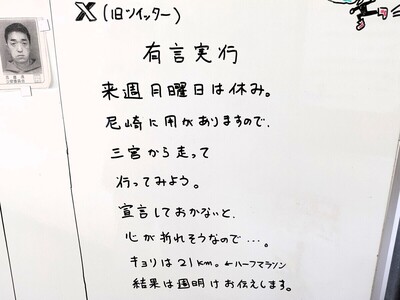 X (旧ツイッター)
有言実行
来週月曜日は休み。
尼崎に用がありますので、
三宮から走って
行ってみよう。
宣言しておかないと、
心が折れそうなので…。
キョリは21km。←ハーフマラソン
結果は週明けお伝えします。